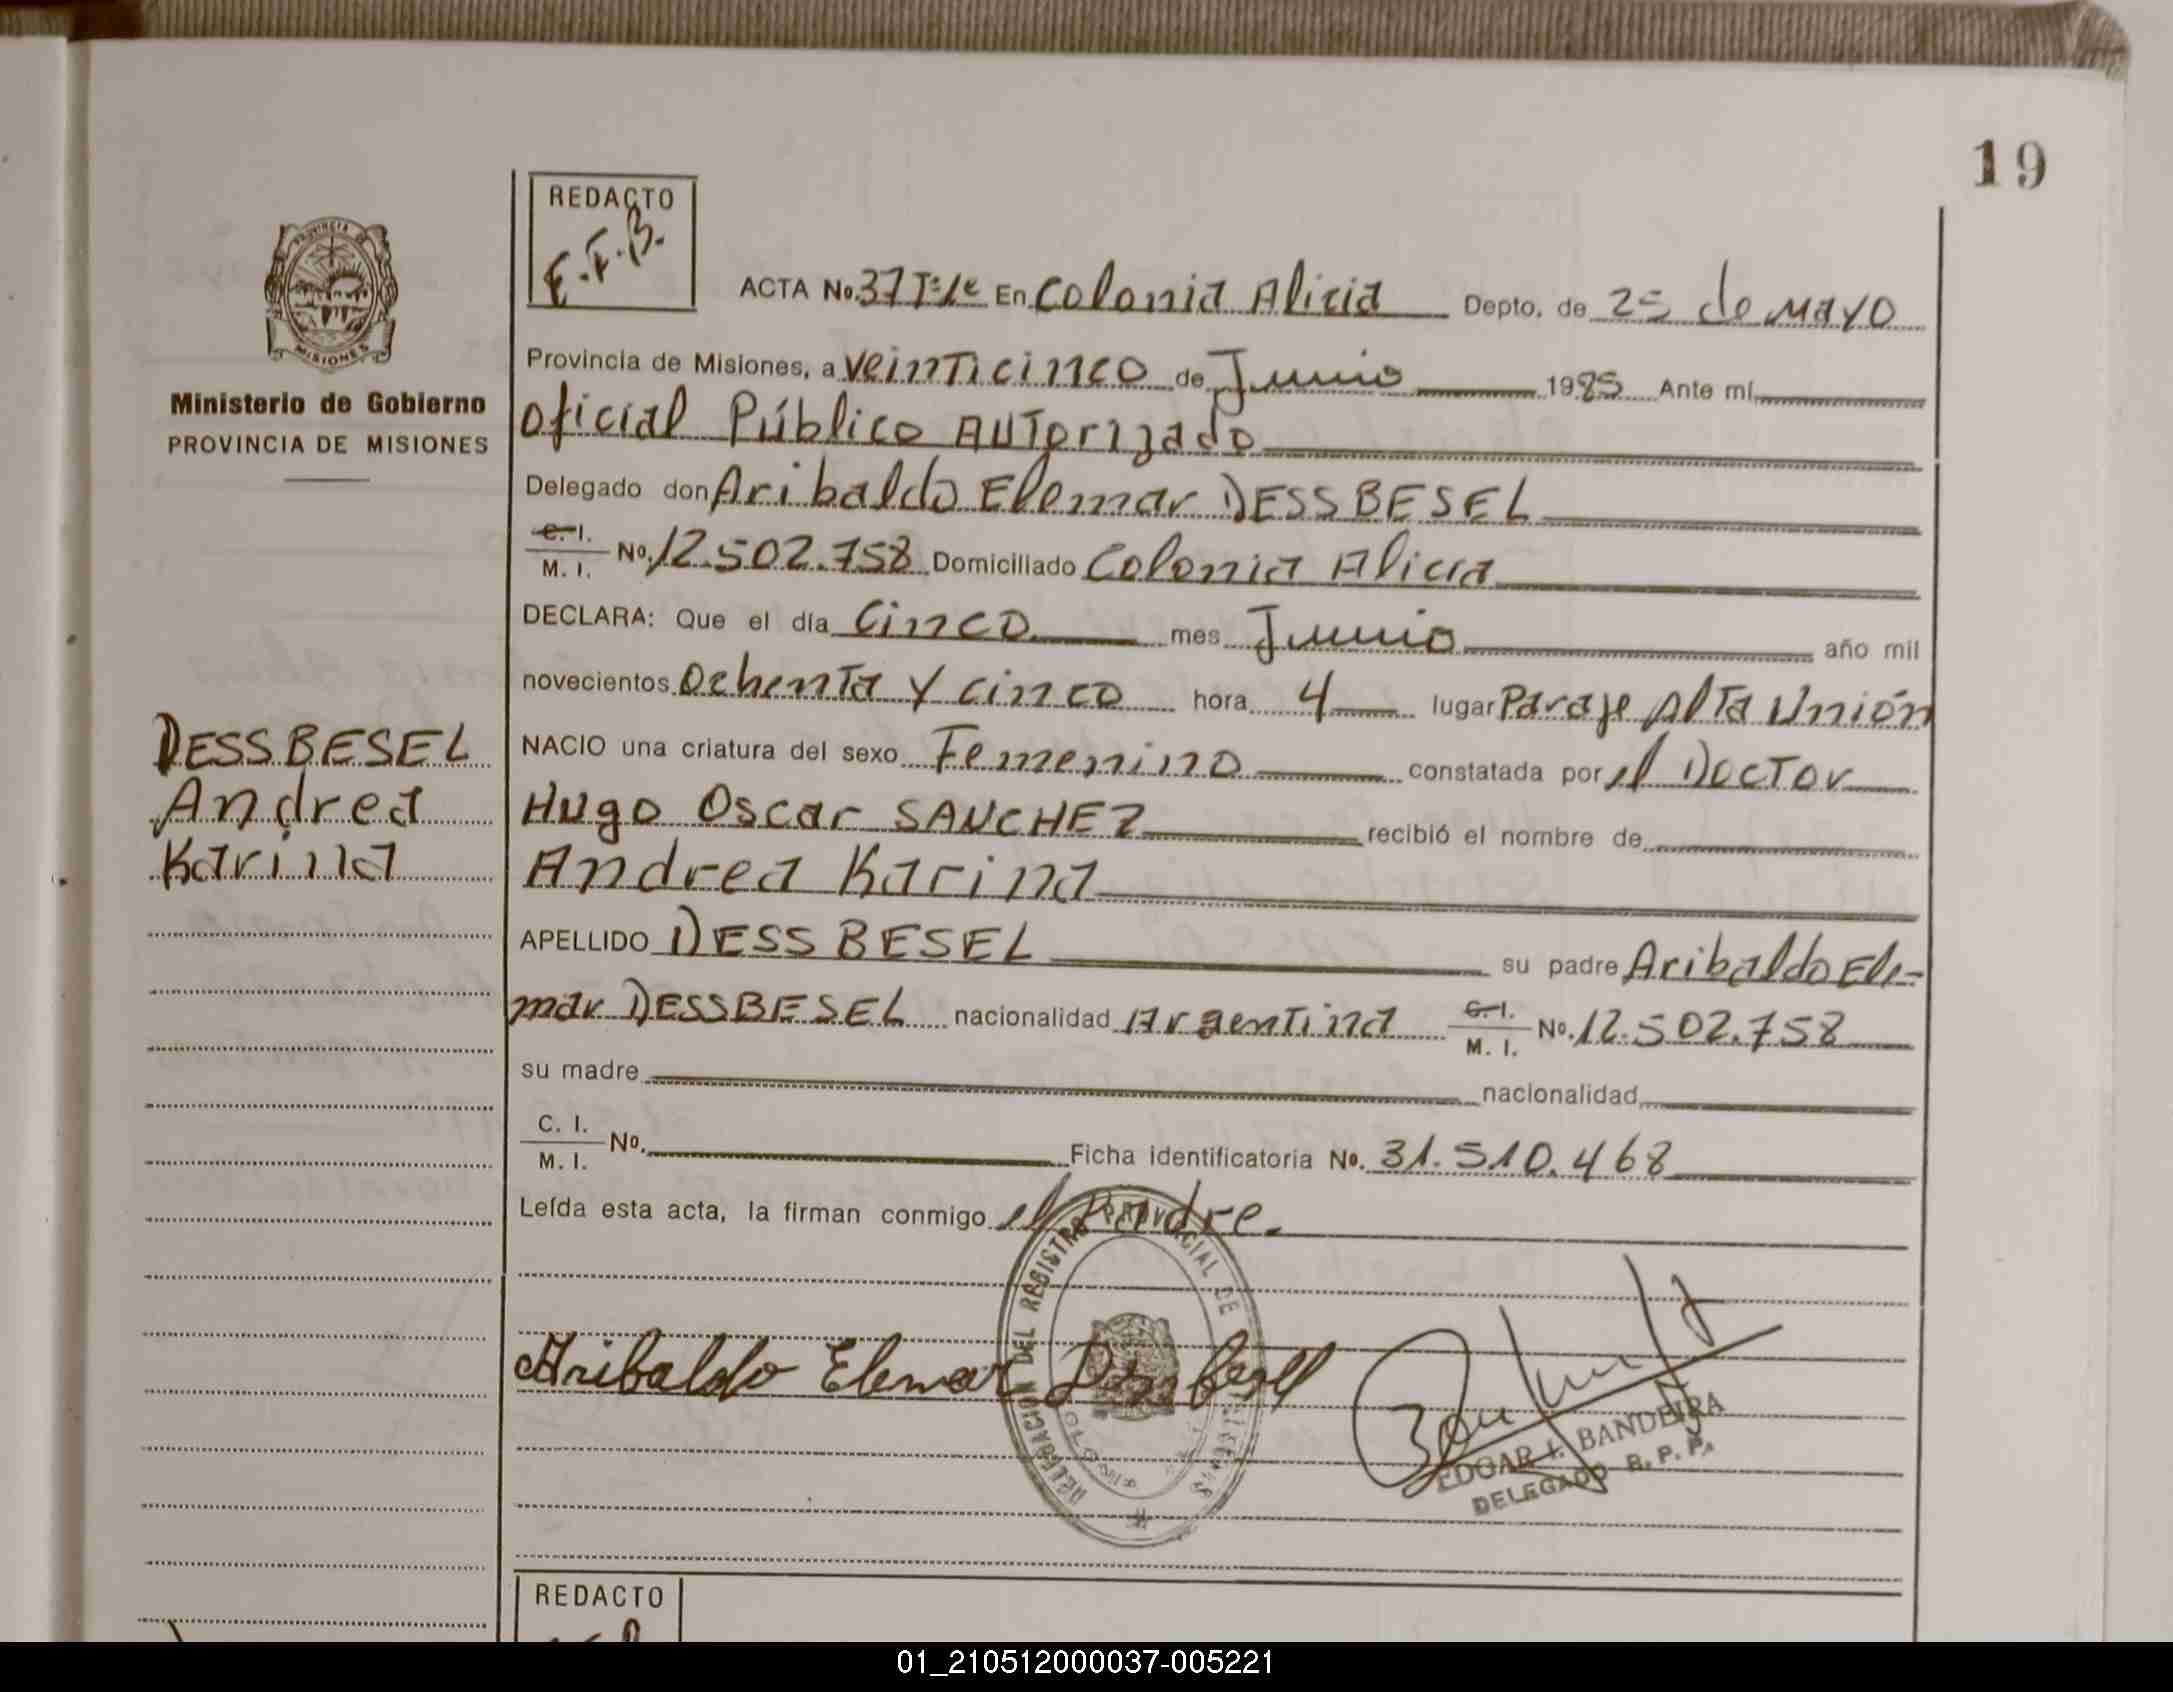 19
REDACTO
E.F.B.
PROVINCIA
MISIONES
Ministerio de Gobierno
PROVINCIA DE MISIONES
ACTA No. 37 Tº 1º En Colonia Alicia Depto. de 25 de Mayo
Provincia de Misiones, a Veinticinco de Junio 1985 Ante mí,
Oficial Público Autorizado
Delegado don Aribaldo Elemar DESSBESEL
C. I. M. I. Nº. 12.502.758 Domiciliado Colonia Alicia
DECLARA: Que el día Cinco mes Junio año mil
novecientos Ochenta y cinco hora 4 lugar Paraje Alta Unión
NACIO una criatura del sexo Femenino constatada por el Doctor
Hugo Oscar SANCHEZ recibió el nombre de
Andrea Karina
DESSBESEL
Andrea
Karina
APELLIDO DESSBESEL su padre Aribaldo Ele-
mar DESSBESEL nacionalidad Argentina C. I. M. I. Nº. 12.502.758
su madre nacionalidad
C. I. M. I. Nº. Ficha identificatoria Nº. 31.510.468
Leída esta acta, la firman conmigo el Padre.
DELEGACION DEL REGISTRO PROVINCIAL DE
Aribaldo Elemar Dessbesell
EDGAR F. BANDEIRA
DELEGADO R. P. P.
REDACTO
01_210512000037-005221